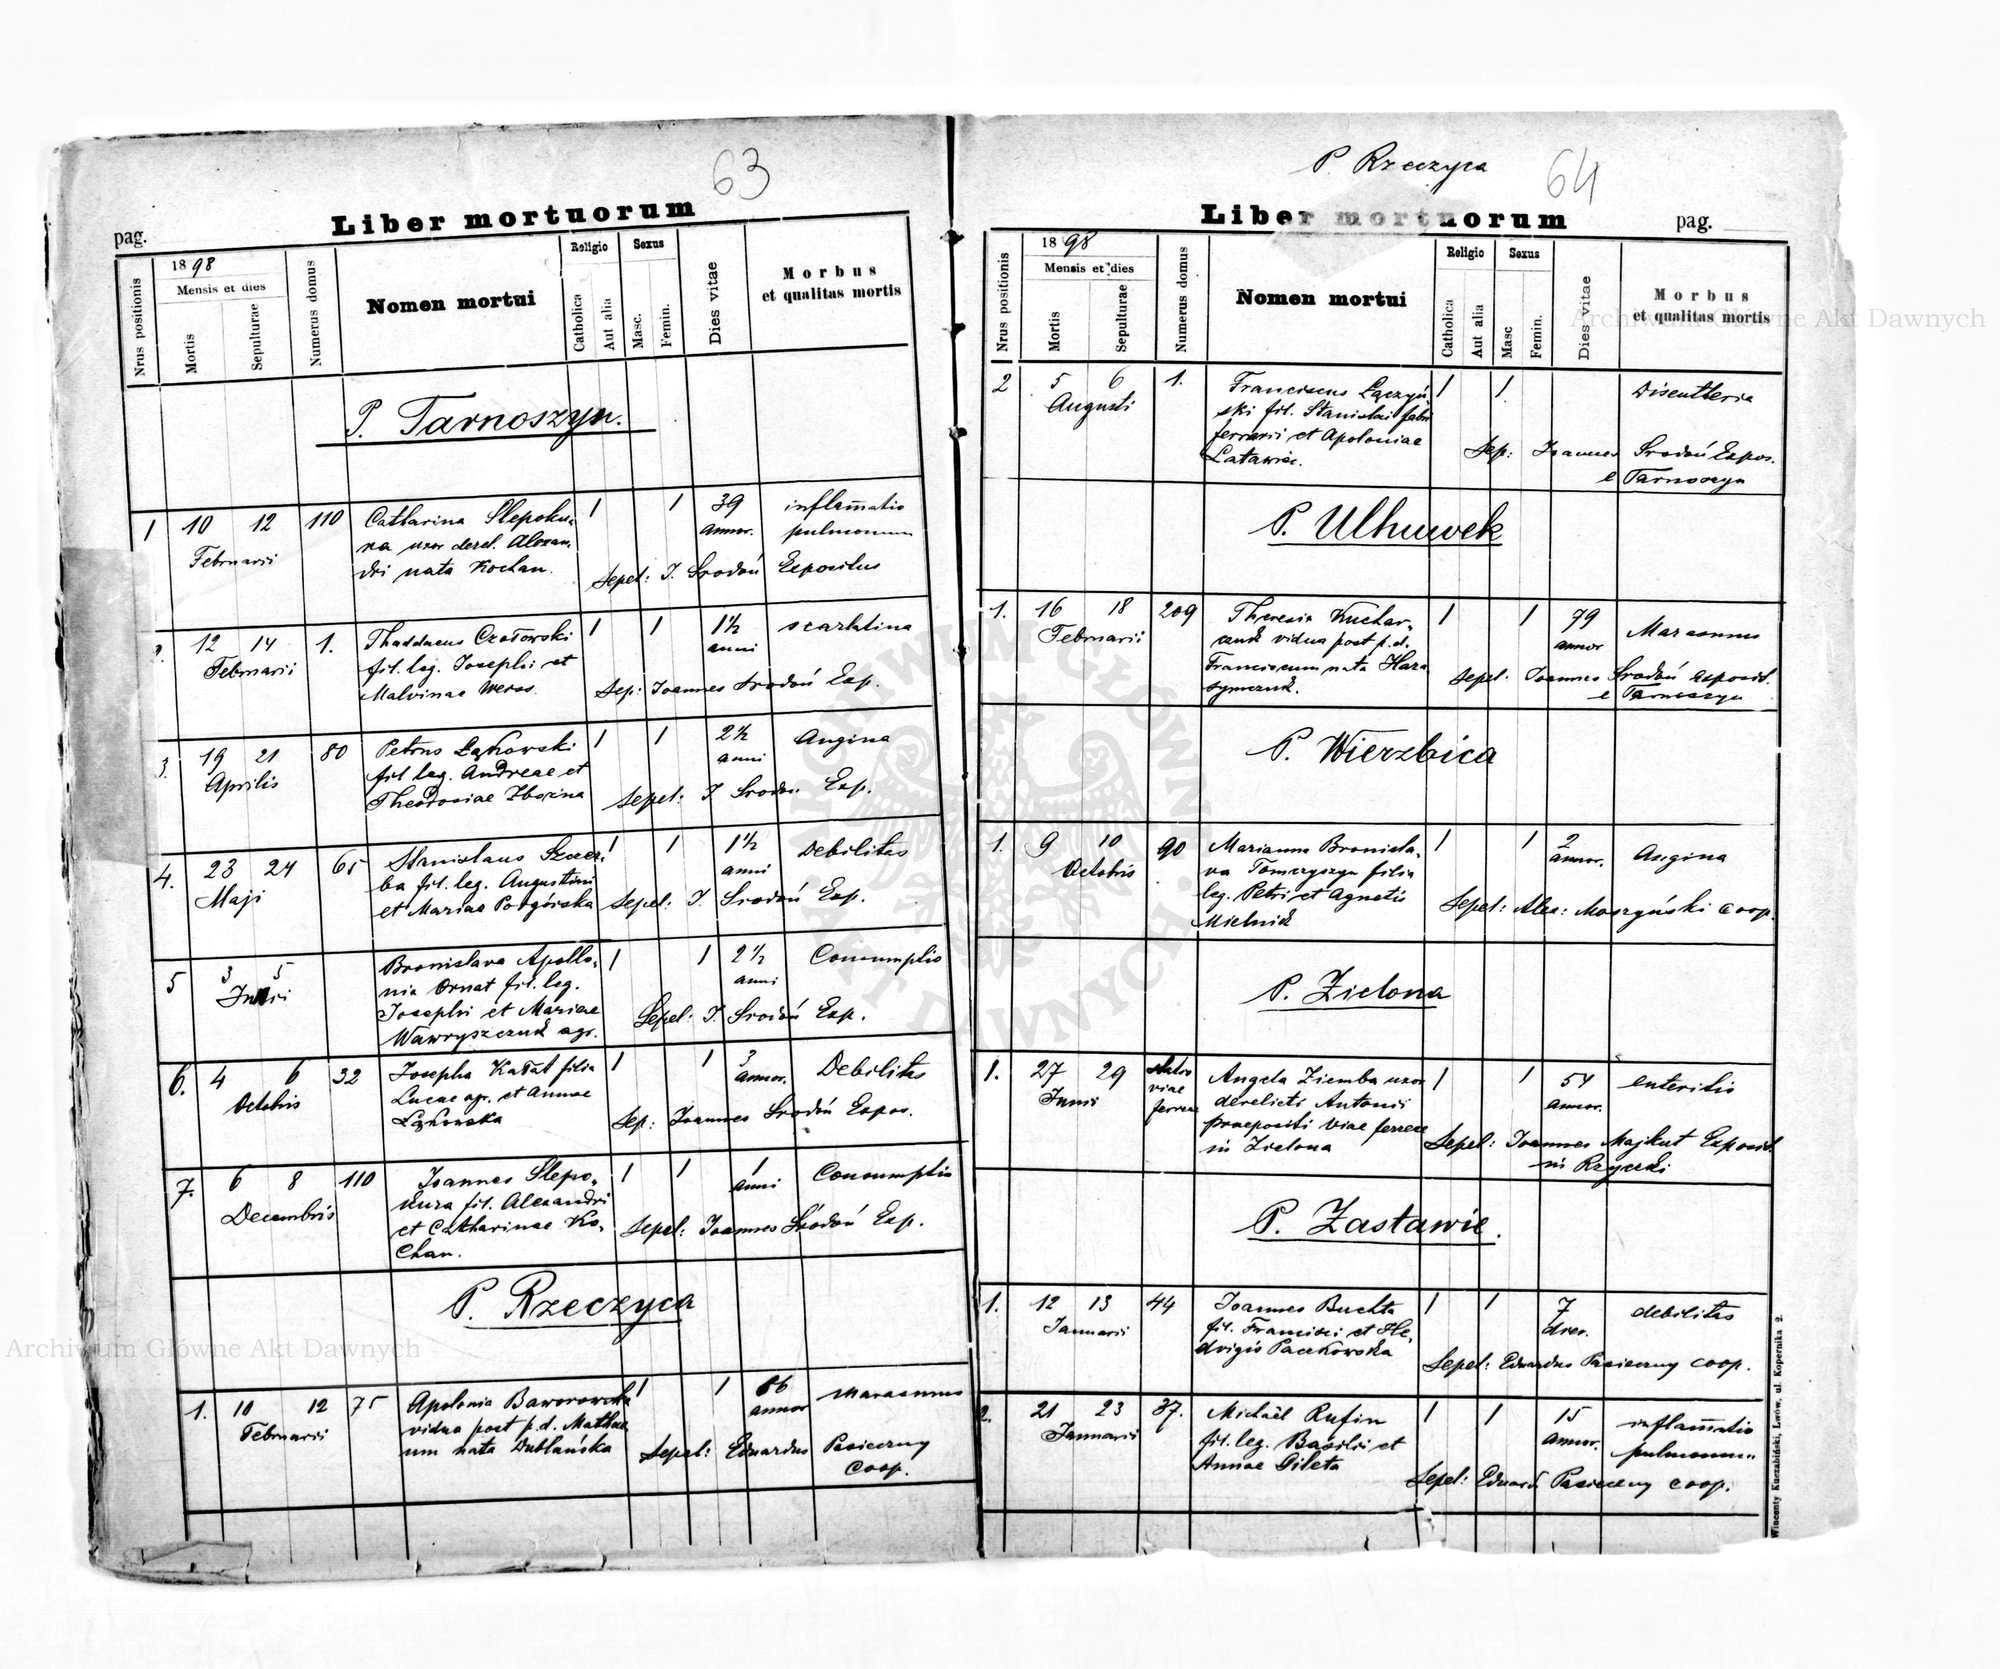 63
Liber mortuorum
pag.
Nrus positionis
1898
Mensis et dies
Mortis
Sepulturae
Numerus domus
Nomen mortui
Religio
Catholica
Aut alia
Sexus
Masc.
Femin.
Dies vitae
Morbus
et qualitas mortis
P. Tarnoszyn.
1 10 12 110 Catharina Slepoku- 1 1 39 inflam̄atio
ra uxor derel. Alexan- annor. pulmonum
Februarii dri nata Kochan. Sepel: J. Srodoń Expositus
2. 12 14 1. Thaddaeus Czołowski 1 1 1½ scarlatina
Februarii fil. leg. Josephi et anni
Malvinae Weiss. Sep: Joannes Srodoń Exp.
3. 19 21 80 Petrus Łąkowski 1 1 2½ Angina
Aprilis fil leg. Andreae et anni
Theodosiae Sepel: J Srodoń Exp.
4. 23 24 65 Stanislaus Szczer- 1 1 1½ Debilitas
Maji ba fil. leg. Augustini anni
et Mariae Podgórska Sepel: J. Srodoń Exp.
5 3 5 Bronislava Apollo- 1 1 2½ Consumptio
nia Ornat fil. leg. anni
Josephi et Mariae Sepel: J. Srodoń Exp.
Wawryszczuk agr.
6. 4 6 32 Josepha Kałat filia 1 1 3 Debilitas
Octobris Lucae agr. et Annae annor.
Łąkowska Sep: Joannes Srodoń Expos.
7. 6 8 110 Joannes Slepo- 1 1 1 Consumptio
Decembris kura fil. Alexandri anni
et Catharinae Ko- Sepel: Joannes Środoń Exp.
chan.
P. Rzeczyca
1. 10 12 75 Apolonia Baworowska 1 1 66 Marasmus
Februarii vidua post p.d. Mathae annor
um nata Dublańska Sepel: Eduardus Pasieczny
coop.
P. Rzeczyca 64
Liber mortuorum
pag.
Nrus positionis
1898
Mensis et dies
Mortis
Sepulturae
Numerus domus
Nomen mortui
Religio
Catholica
Aut alia
Sexus
Masc
Femin.
Dies vitae
Morbus
et qualitas mortis
2 5 6 1. Franciscus Łączyń- 1 1 Disentteria
Augusti ski fil. Stanislai fabri
ferrarii et Apoloniae Sep: Joannes Srodoń Expos.
Latawiec. e Tarnoszyn
P. Ulhuwek
1. 16 18 209 Theresia Kuchar- 1 1 79 Marasmus
Februarii czuk vidua post p.d. annor
Franciscum nata Hara Sepel. Joannes Srodoń exposit.
symczuk. e Tarnoszyn
P. Wierzbica
1. 9 10 90 Marianna Bronisla- 1 1 2 Angina
Octobris va Tomczyszyn filia annor.
leg. Petri et Agnetis Sepel: Alex: Moszyński coop.
Mielnik
P. Zielona
1. 27 29 statio Angela Ziemba uxor 1 1 54 enteritis
Junii viae derelicti Antonii annor.
ferreae praepositi viae ferreae Sepel: Joannes Majkut Exposit.
in Zielona in Rzyczki
P. Zastawie.
1. 12 13 44 Joannes Buchta 1 1 7 debilitas
Januarii fil. Francisci et He- dier.
dvigis Paczkowska Sepel: Eduardus Pasieczny coop.
2. 21 23 37. Michaël Rufin 1 1 15 inflam̄atio
Januarii fil. leg. Basilii et annor. pulmonum
Annae Pileta Sepel: Eduard Pasieczny coop.
Wincenty Kuczabiński, Lwów, ul. Kopernika 2.
Archiwum Główne Akt Dawnych
Archiwum Główne Akt Dawnych
ARCHIWUM GŁÓWNE · AKT DAWNYCH ·